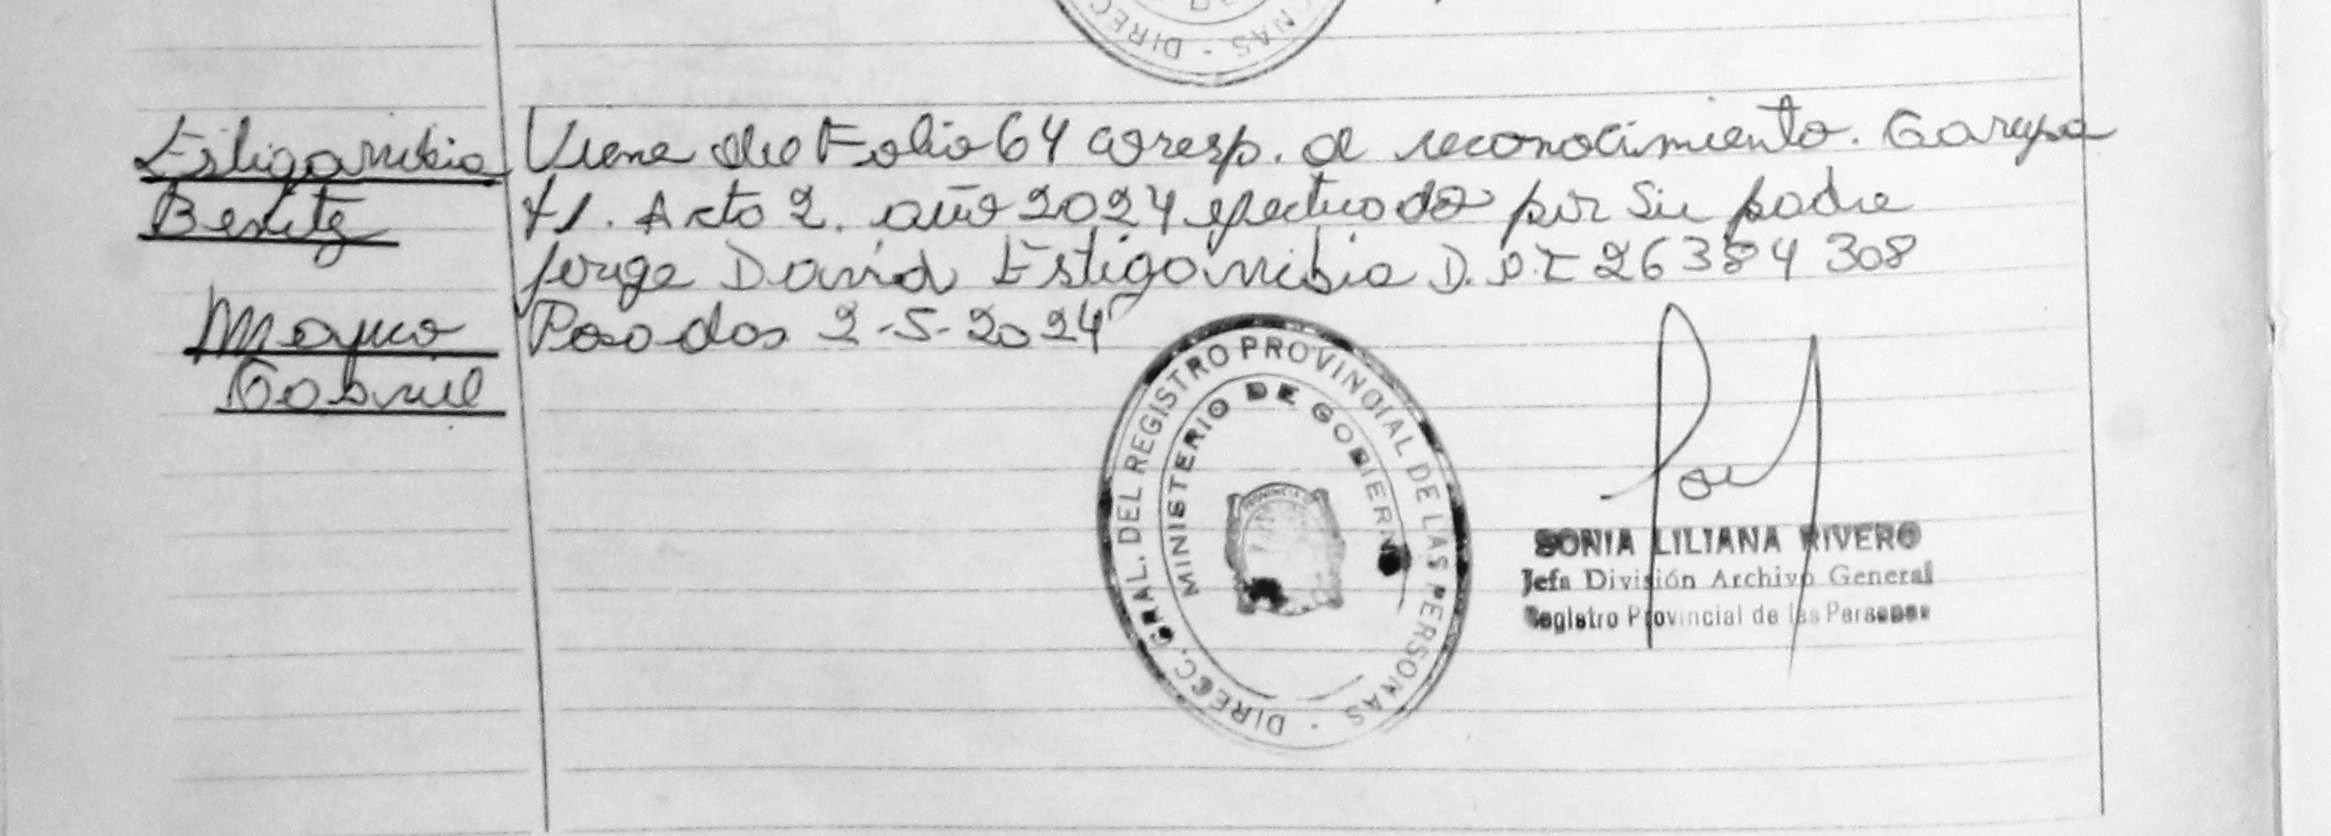 DIRECC
NAS -
Estigarribia
Benitez
Mayco
Gabriel
Viene de Folio 64 corresp. a reconocimiento. Garupa
T1. Acta 2. año 2024 efectuado por su padre
Jorge David Estigarribia D.N.I 26384308
Posadas 2-5-2024
DIRECC. GRAL. DEL REGISTRO PROVINCIAL DE LAS PERSONAS -
MINISTERIO DE GOBIERNO
SONIA LILIANA RIVERO
Jefa División Archivo General
Registro Provincial de las Personas